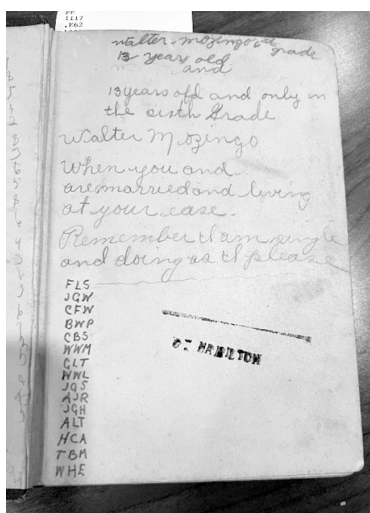 PF
1117
.E62
Walter Mozingo 6th grade
13 years old
and
13 years old and only in
the sixth Grade
Walter Mozingo
When you and
are married and living
at your ease.
Remember I am single
and doing as I please
FLS
JGW
CFW
BWP
CBS
WWM
GLT
WNL
JGS
AJR
JGH
ALT
HCA
TBM
WHE
HAMILTON